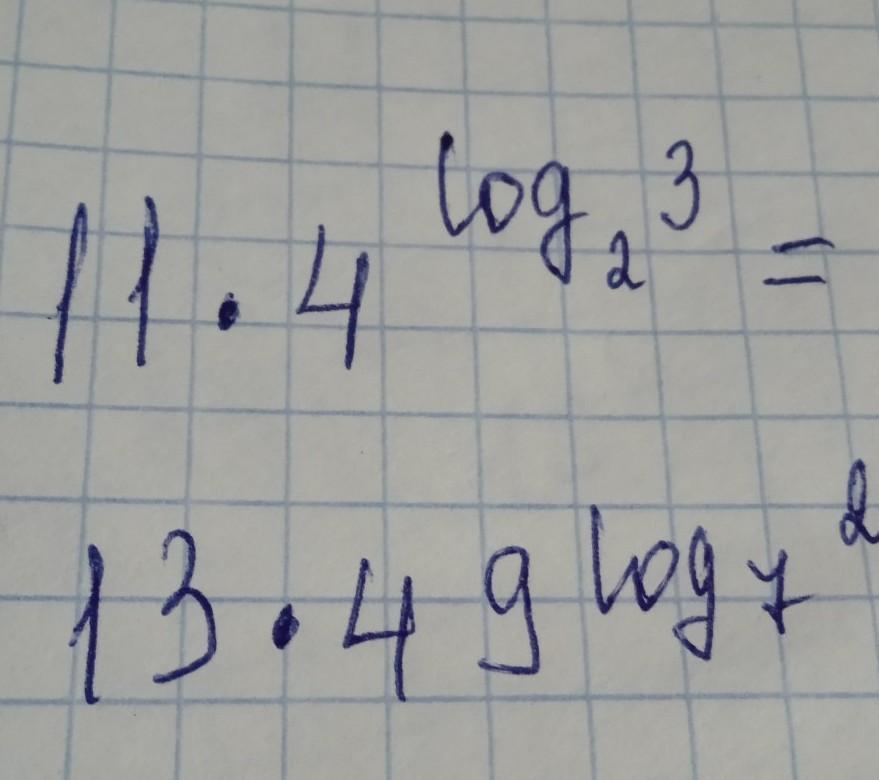 11 · 4^log₂3 =
13 · 49^log₇2